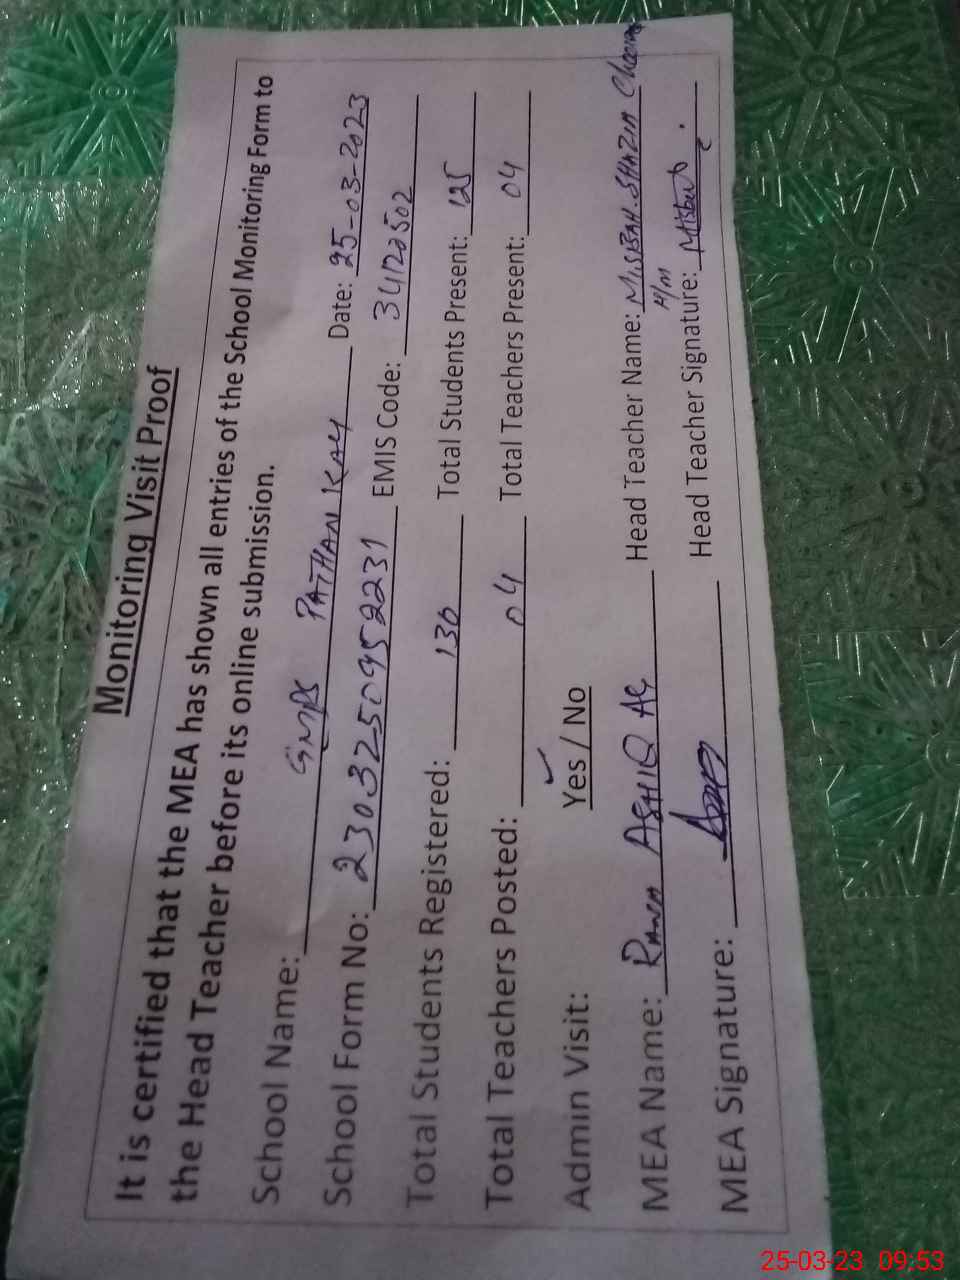 Monitoring Visit Proof
It is certified that the MEA has shown all entries of the School Monitoring Form to
the Head Teacher before its online submission.
School Name: GMPS PATHAN KAY Date: 25-03-2023
School Form No: 2303250952231 EMIS Code: 34122502
Total Students Registered: 130 Total Students Present: 125
Total Teachers Posted: 04 Total Teachers Present: 04
Admin Visit: Yes / No
MEA Name: Rana ASHIQ Head Teacher Name: MISBAH SHAZIM
H/M
MEA Signature: Head Teacher Signature: Misbah
25-03-23 09:53